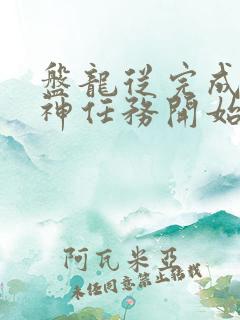 盤龍從完成
神任務開始
阿瓦米亞
未經同意禁止轉載